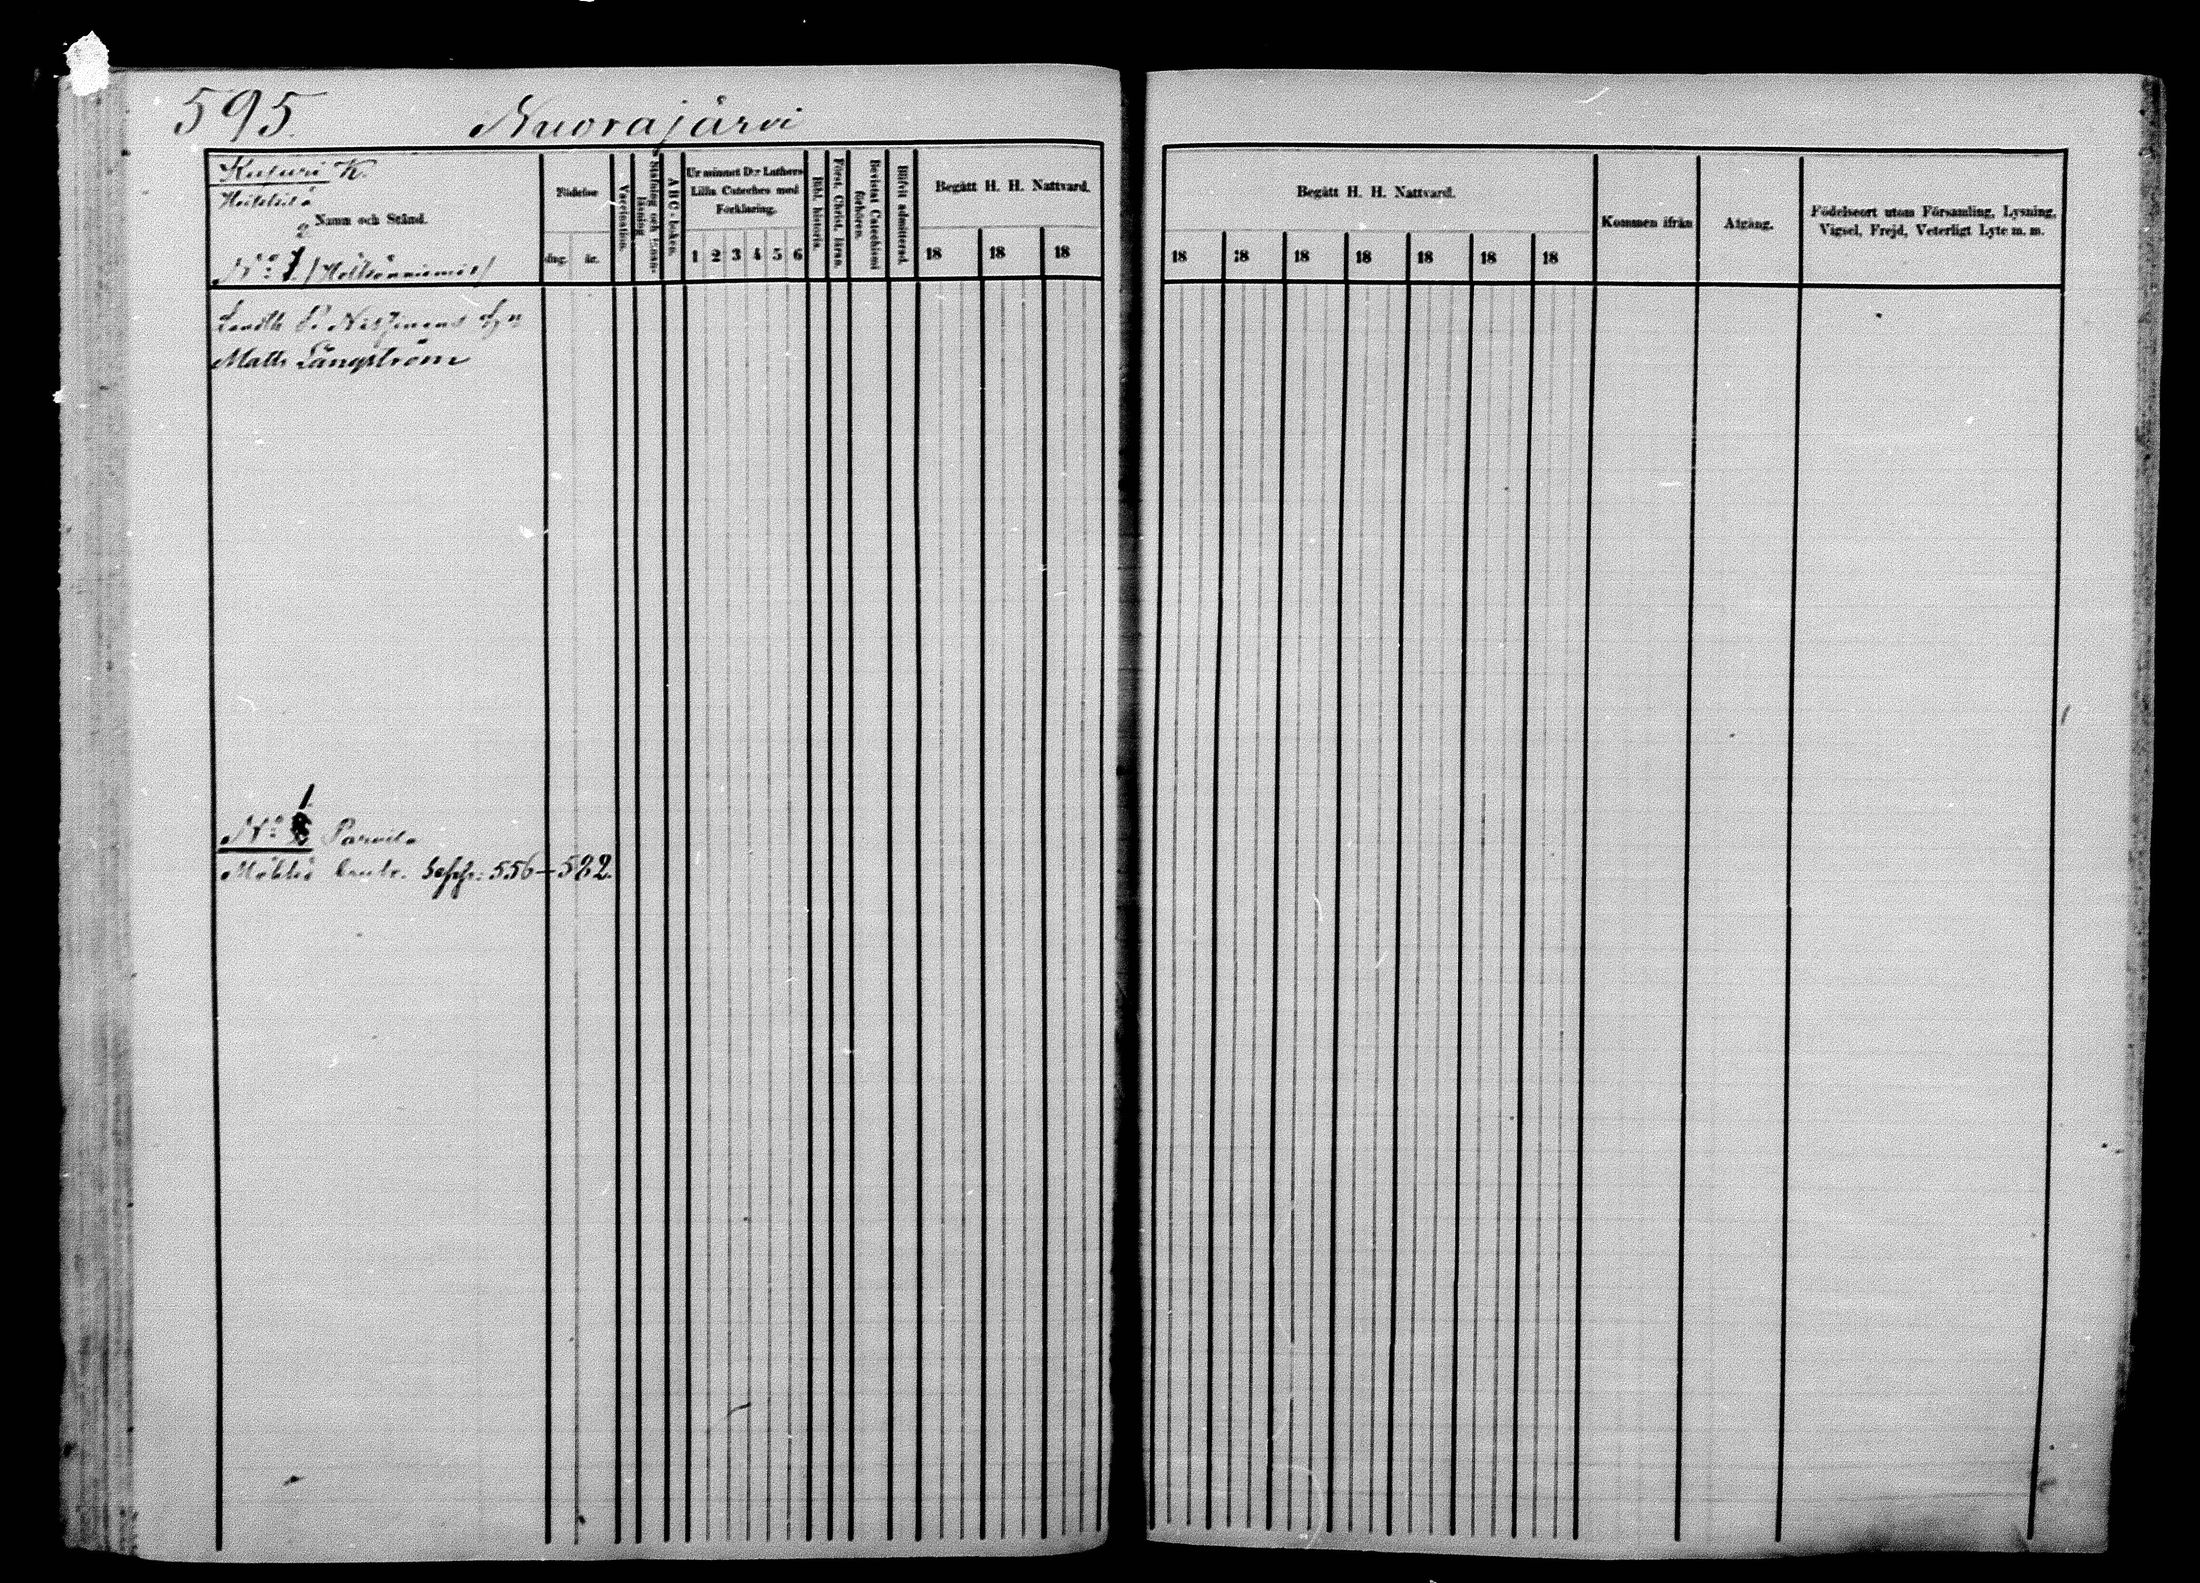 595. Nuorajärvi
Kuturi K.
Namn och Stånd.
2
N:o 1.
Födelse
dag. år.
Vaccination.
Stafning och Innanläsning
A B C-boken.
Ur minnet D:r Luthers
Lilla Cateches med
Förklaring.
1 2 3 4 5 6
Bibl. historia.
Först. Christ. läran.
Bevistat Catechismi förhören.
Blifvit admitterad.
Begått H. H. Nattvard.
18 18 18
Begått H. H. Nattvard.
18 18 18 18 18 18 18
Kommen ifrån
Afgång.
Födelseort utom Församling, Lysning,
Vigsel, Frejd, Veterligt Lyte m. m.
Matts Långström
1
N:o Parvila
556–582.